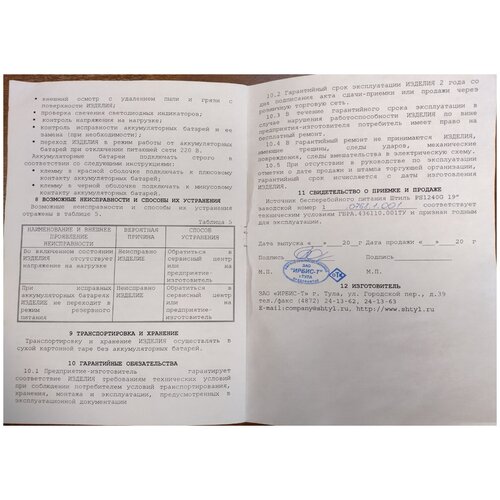 • внешний осмотр с удалением пыли и грязи с
поверхности ИЗДЕЛИЯ;
• проверка свечения светодиодных индикаторов;
• контроль напряжения на нагрузке;
• контроль исправности аккумуляторных батарей и ее
замена (при необходимости);
• переход ИЗДЕЛИЯ в режим работы от аккумуляторных
батарей при отключении питающей сети 220 В.
Аккумуляторные батареи подключать строго в
соответствии со следующими инструкциями:
• клемму в красной оболочке подключать к плюсовому
контакту аккумуляторных батарей;
• клемму в черной оболочке подключать к минусовому
контакту аккумуляторных батарей.
8 ВОЗМОЖНЫЕ НЕИСПРАВНОСТИ И СПОСОБЫ ИХ УСТРАНЕНИЯ
Возможные неисправности и способы их устранения
отражены в таблице 5.
Таблица 5
НАИМЕНОВАНИЕ И ВНЕШНЕЕ ПРОЯВЛЕНИЕ НЕИСПРАВНОСТИ
ВЕРОЯТНАЯ ПРИЧИНА
СПОСОБ УСТРАНЕНИЯ
Во включенном состоянии ИЗДЕЛИЯ отсутствует напряжение на нагрузке
Неисправно ИЗДЕЛИЕ
Обратиться в сервисный центр или на предприятие-изготовитель
При исправных аккумуляторных батареях ИЗДЕЛИЕ не переходит в режим резервного питания
Неисправно ИЗДЕЛИЕ
Обратиться в сервисный центр или на предприятие-изготовитель
9 ТРАНСПОРТИРОВКА И ХРАНЕНИЕ
Транспортировку и хранение ИЗДЕЛИЯ осуществлять в
сухой картонной таре без аккумуляторных батарей.
10 ГАРАНТИЙНЫЕ ОБЯЗАТЕЛЬСТВА
10.1 Предприятие-изготовитель гарантирует
соответствие ИЗДЕЛИЯ требованиям технических условий
при соблюдении потребителем условий транспортирования,
хранения, монтажа и эксплуатации, предусмотренных в
эксплуатационной документации
10.2 Гарантийный срок эксплуатации ИЗДЕЛИЯ 2 года со
дня подписания акта сдачи-приемки или продажи через
розничную торговую сеть.
10.3 В течение гарантийного срока эксплуатации в
случае нарушения работоспособности ИЗДЕЛИЯ по вине
предприятия-изготовителя потребитель имеет право на
бесплатный ремонт.
10.4 В гарантийный ремонт не принимаются ИЗДЕЛИЯ,
имеющие трещины, следы ударов, механические
повреждения, следы вмешательства в электрическую схему.
10.5 При отсутствии в руководстве по эксплуатации
отметки о дате продажи и штампа торгующей организации
гарантийный срок исчисляется с даты изготовления
ИЗДЕЛИЯ.
11 СВИДЕТЕЛЬСТВО О ПРИЕМКЕ И ПРОДАЖЕ
Источник бесперебойного питания Штиль PS12400 19"
заводской номер соответствует
техническим условиям ГВРА.436110.001ТУ и признан годным
для эксплуатации.
Дата выпуска «__»____20__г Дата продажи «__»__20 г
Подпись Подпись
М.П. М.П.
ЗАО
"ИРБИС-Т"
г.ТУЛА
ОТК
12 ИЗГОТОВИТЕЛЬ
ЗАО «ИРБИС-Т» г. Тула, ул. Городской пер., д.39
тел./факс (4872) 24-13-62, 24-13-63
E-mail:company@shtyl.ru, http://www.shtyl.ru